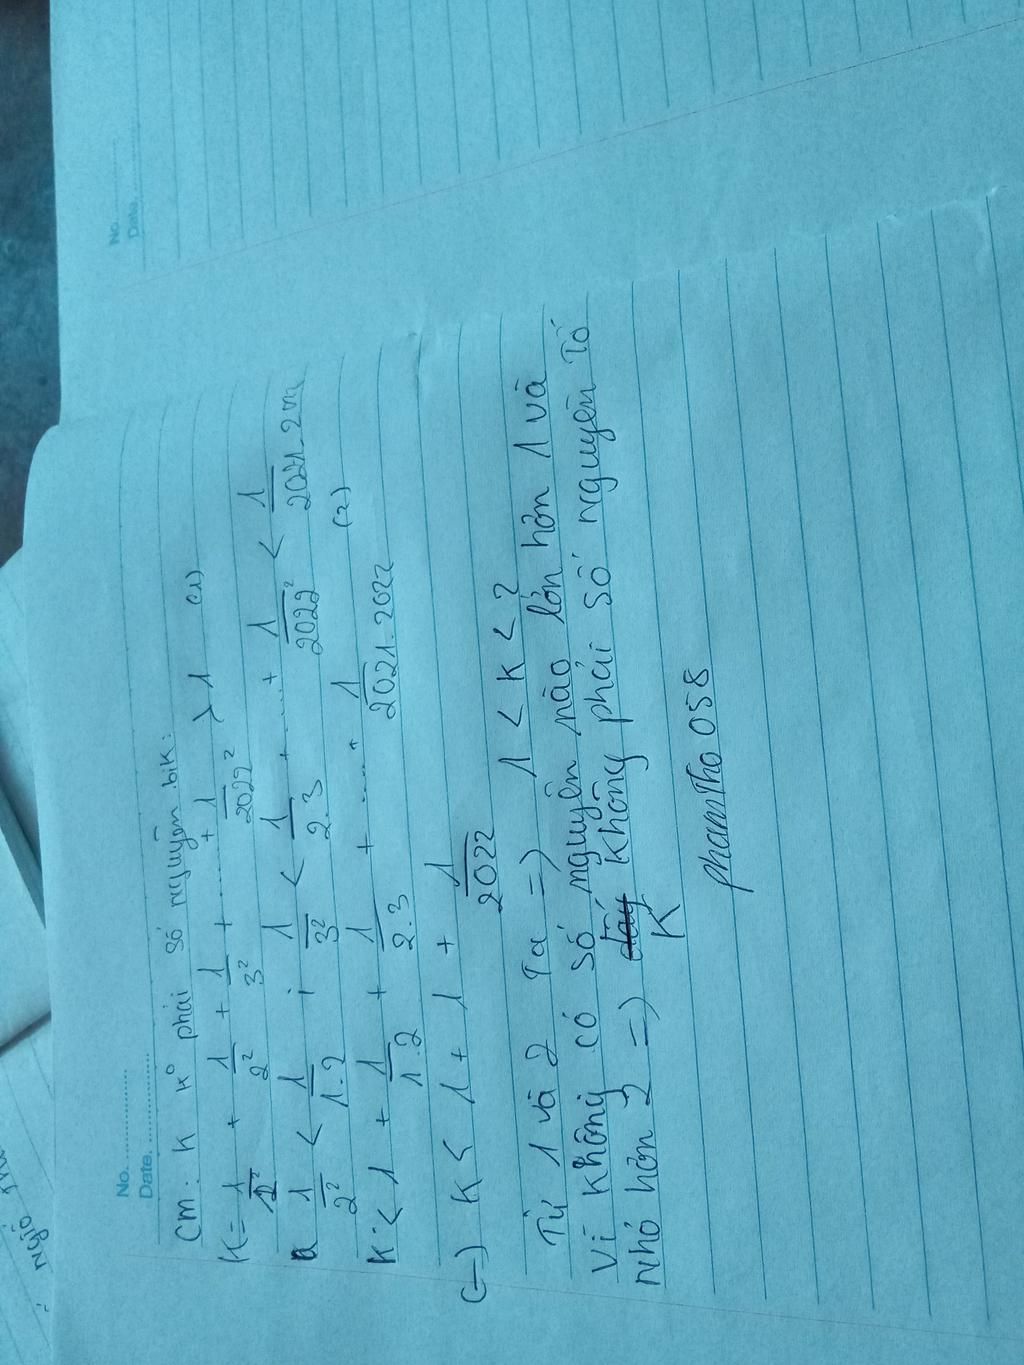 No. ..............
Date. ..............
Cm: K K° phải số nguyên biK:
K = 1/1² + 1/2² + 1/3² + ....... + 1/2022² > 1 (1)
1/2² < 1/1.2 ; 1/3² < 1/2.3 + ....... + 1/2022² < 1/2021.2
K < 1 + 1/1.2 + 1/2.3 + ....... + 1/2021.2022 (2)
(–) K < 1 + 1 + 1/2022
Từ 1 và 2 Ta => 1 < K < 2
Vì không có số nguyên nào lớn hơn 1 và
nhỏ hơn 2 => K không phải số nguyên Tố
phamTho058
No. ..............
Date. ..............